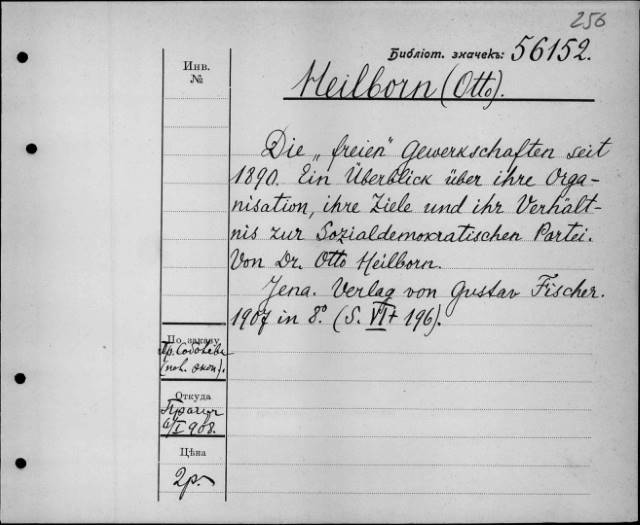 256
Инв.
№
Библіот. значекъ: 56152.
Heilborn (Otto).
Die „freien" Gewerkschaften seit
1890. Ein Überblick über ihre Orga-
nisation, ihre Ziele und ihr Verhält-
nis zur Sozialdemokratischen Partei.
Von Dr. Otto Heilborn.
Jena. Verlag von Gustav Fischer.
1907 in 8° (S. VI + 196).
По заказу
Откуда
908.
Цѣна
2р.